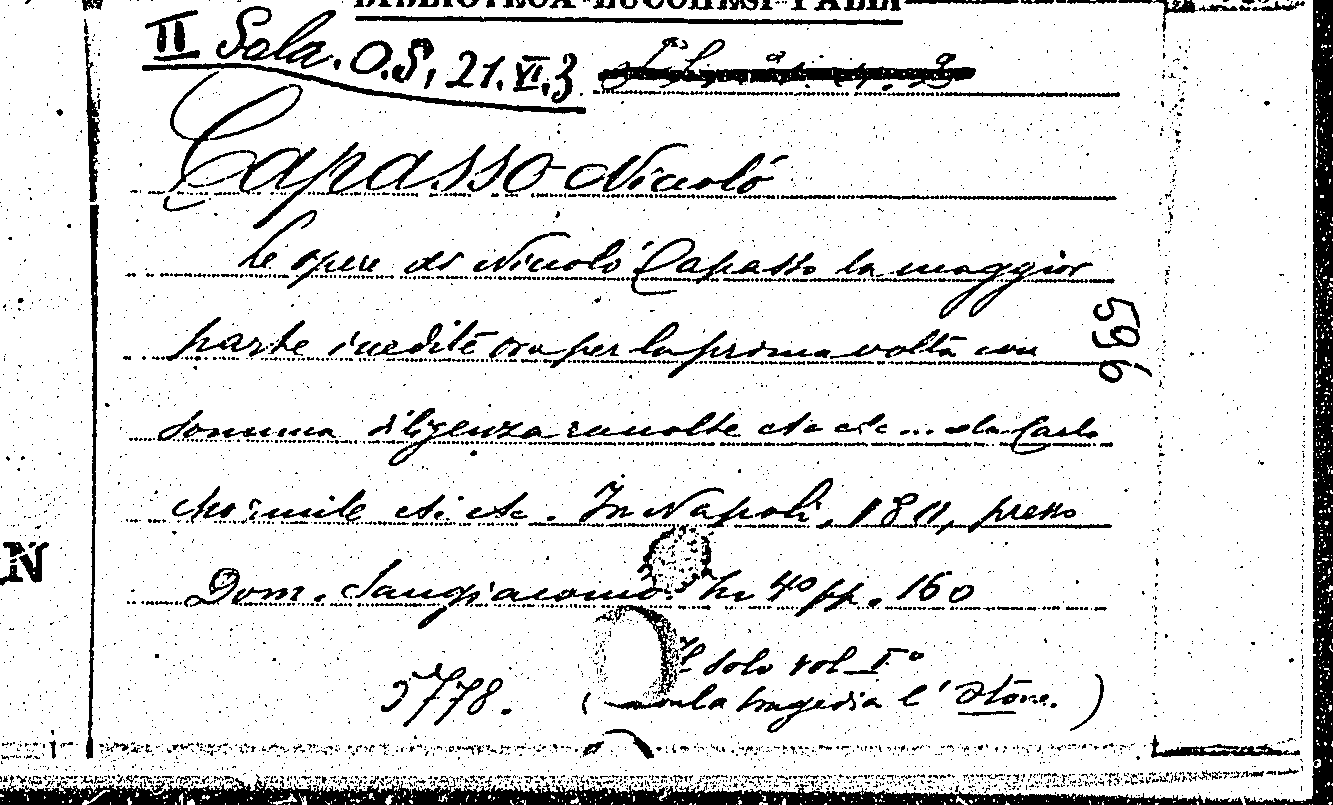 BIBLIOTECA LUCCHESI-PALLI
II Sala. O.S, 21.VI.3
Capasso Niccolò
Le opere di Niccolò Capasso la maggior
parte inedite ora per la prima volta con
somma diligenza raccolte etc etc... da Carlo
Mormile etc etc. In Napoli, 1811, presso
Dom. Sangiacomo. In 4º pp. 160
Il solo vol Iº
5778. ( la tragedia l'Otone. )
595
6
N